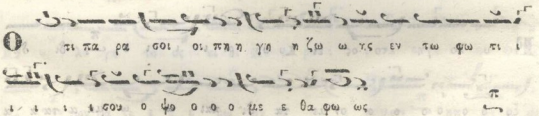 Ο τι πα ρα σοι οι πη η γη η ζω ω ης εν τω φω τι ι
ι ι ι ι σου ο ψο ο ο ο με ε θα φω ως